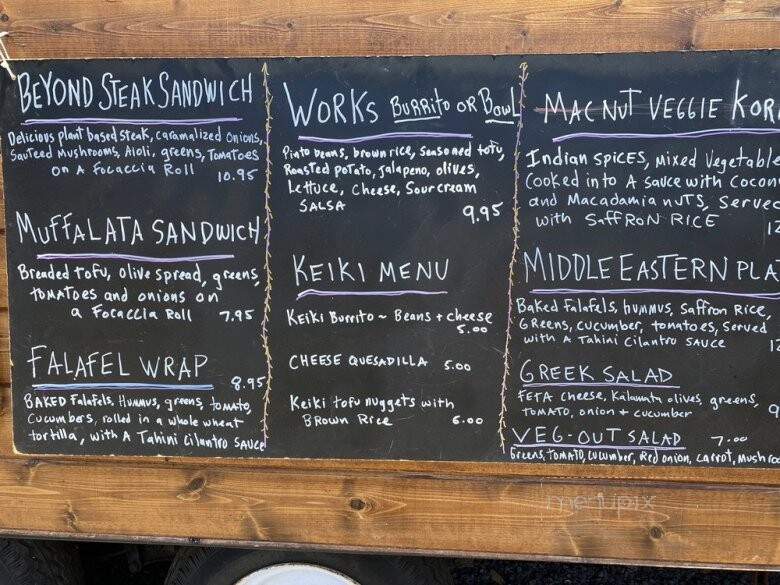 BEYOND STEAK SANDWICH
Delicious plant based steak, caramalized onions,
Sauteed Mushrooms, Aioli, greens, Tomatoes
on A Focaccia Roll 10.95
MUFFALATA SANDWICH
Breaded tofu, olive spread, greens,
tomatoes and onions on
a Focaccia Roll 7.95
FALAFEL WRAP 8.95
BAKED Falafels, Hummus, greens, tomato,
Cucumbers, rolled in a whole wheat
tortilla, with A Tahini Cilantro Sauce
WORKS BURRITO OR BOWL
Pinto beans, brown rice, seasoned tofu,
Roasted potato, jalapeno, olives,
Lettuce, Cheese, Sour cream
SALSA 9.95
KEIKI MENU
Keiki Burrito ~ Beans + cheese
5.00
CHEESE QUESADILLA 5.00
Keiki tofu nuggets with
Brown Rice 6.00
MAC NUT VEGGIE KOR
Indian spices, mixed Vegetable
Cooked into A sauce with Cocon
and Macadamia nuts, served
with Saffron RICE 12
MIDDLE EASTERN PLA
Baked Falafels, hummus, Saffron Rice,
Greens, cucumber, tomatoes, served
with A Tahini cilantro sauce 12
GREEK SALAD
FETA cheese, Kalamata olives, greens,
TOMATO, onion + cucumber 9
VEG-OUT SALAD 7.00
Greens, TOMATO, cucumber, Red onion, carrot, Mushroo
menupix